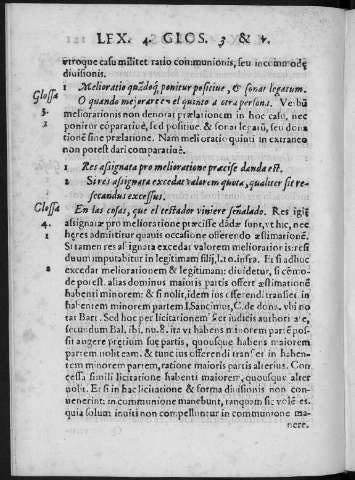 LEX. 4. GLOS. 3 & 4.
vtroque casu militet ratio communionis, seu incommodę
diuisionis.
1 Melioratio quãdoq; ponitur positiue, & sonat legatum.
Glossa 3. O quando mejorare en el quinto a otra persona. Verbũ
meliorationis non denotat prælationem in hoc casu, nec
2 ponitur cõparatiuè, sed positiuè, & sonat legatũ, seu dona
tionē sine prælatione. Nam melioratio quinti in extraneo
non potest dari comparatiuè.
1 Res assignata pro melioratione præcise danda est.
2 Si res assignata excedat valorem quotæ, qualiter sit re-
secandus excessus.
Glossa 4. En las cosas, que el testador viniere señalado. Res igit̃
assignatæ pro melioratione præcisse dādæ sunt, vt hic, nec
1 heres admittitur quauis occasione offerendo æstimationē.
2 Si tamen res assignata excedat valorem meliorationis: resi
duum imputabitur in legitimam filij, l. 10. infra. Et si adhuc
excedat meliorationem & legitimam: diuidetur, si cõmo-
dè potest. alias dominus maioris partis offerret æstimationē
habenti minorem: & si nolit, idem ius offerendi transiet in
habentem minorem partem l. Sancimus, C. de dona. vbi no
tat Bart. Sed hoc per licitationem
secundum Bal. ibi, nu. 8. ita vt habens minorem partē pos-
sit augere pretium suę partis, quousque habens maiorem
partem nolit eam. & tunc ius offerendi transiet in haben-
tem minorem partem, ratione maioris partis alterius. Con
cessa simili licitatione habenti maiorem, quousque alter
nolit. Et si in hac licitatione & forma diuisionis non con-
uenerint: in communione manebunt, tanquam sic volētes.
quia solum inuiti non compelluntur in communione ma-
nere.